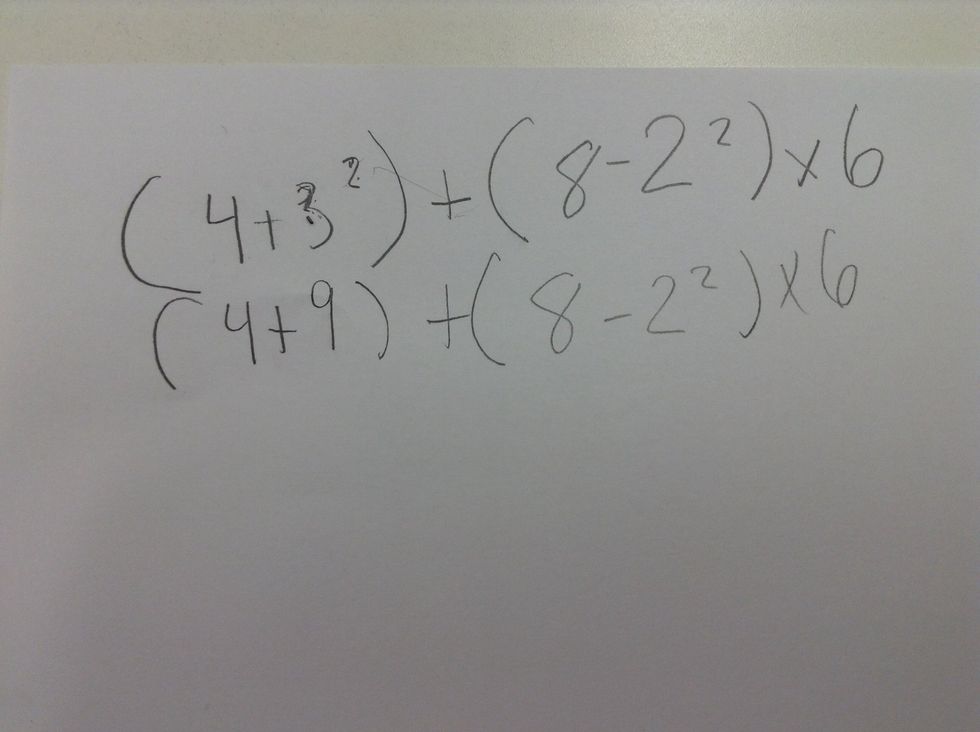 (4+3²)+(8-2²)×6
(4+9)+(8-2²)×6